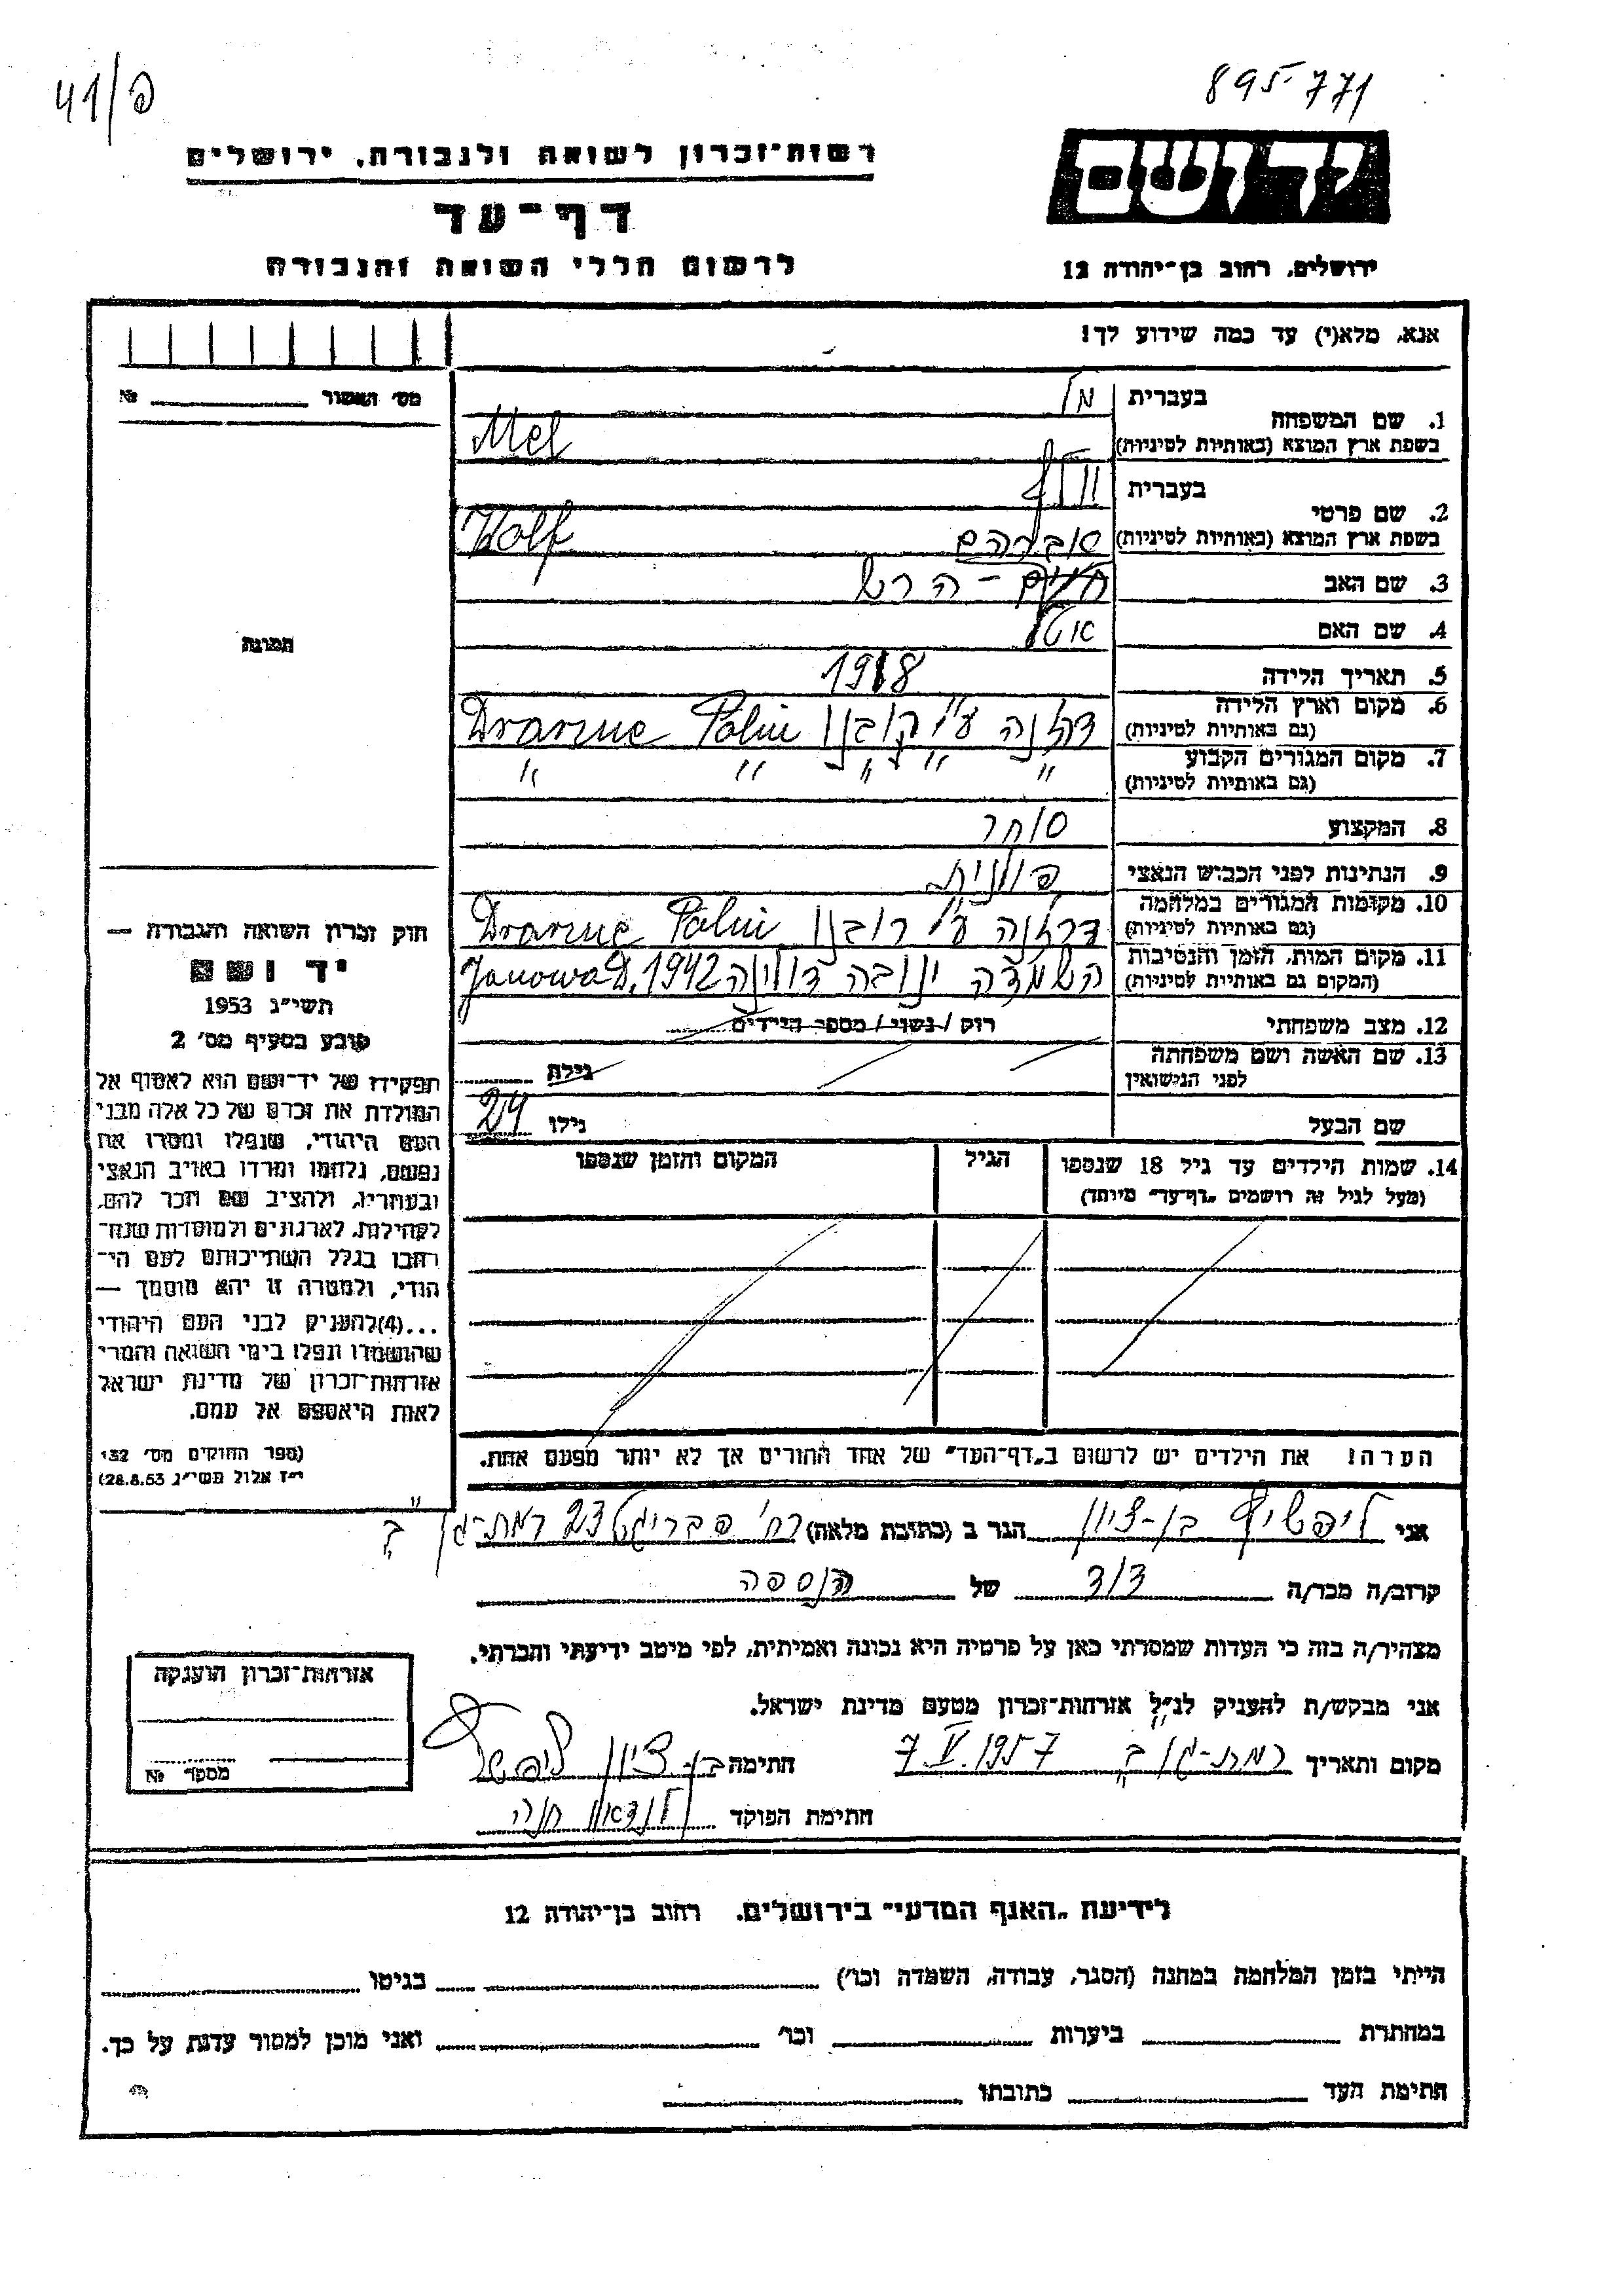 41/פ
895771
רשות-זכרון לשואה ולגבורה, ירושלים
יד ושם
דף-עד
לרשום חללי השואה והגבורה
ירושלים, רחוב בן-יהודה 12
אנא, מלא(י) עד כמה שידוע לך!
מס' האשור № 
1. שם המשפחה
בעברית מל
בשפת ארץ המוצא (באותיות לטיניות) Mel
2. שם פרטי
בעברית וולף
בשפת ארץ המוצא (באותיות לטיניות) Wolf
אברהם
3. שם האב חיים - הרש
4. שם האם אטל
5. תאריך הלידה 1918
6. מקום וארץ הלידה
(גם באותיות לטיניות)
7. מקום המגורים הקבוע " " " " "
(גם באותיות לטיניות)
8. המקצוע סוחר
9. הנתינות לפני הכבוש הנאצי פולנית
10. מקומות המגורים במלחמה
(גם באותיות לטיניות)
11. מקום המות, הזמן והנסיבות השמדה ינובה דולינה 1942 Janowa D.
(המקום גם באותיות לטיניות)
12. מצב משפחתי רווק / נשוי / מספר הילדים
13. שם האשה ושם משפחתה גילה
לפני הנישואין
שם הבעל גילו 24
14. שמות הילדים עד גיל 18 שנספו הגיל המקום והזמן שנספו
(מעל לגיל זה רושמים "דף-עד" מיוחד)
הערה! את הילדים יש לרשום ב"דף-העד" של אחד ההורים אך לא יותר מפעם אחת.
תמונה
חוק זכרון השואה והגבורה —
יד ושם
תשי"ג 1953
קובע בסעיף מס' 2
תפקידו של יד-ושם הוא לאסוף אל
המולדת את זכרם של כל אלה מבני
העם היהודי, שנפלו ומסרו את
נפשם, נלחמו ומרדו באויב הנאצי
ובעוזריו, ולהציב שם וזכר להם,
לקהילות, לארגונים ולמוסדות שנח-
רבו בגלל השתייכותם לעם הי-
הודי, ולמטרה זו יהא מוסמך —
...(4) להעניק לבני העם היהודי
שהושמדו ונפלו בימי השואה והמרי
אזרחות-זכרון של מדינת ישראל
לאות היאספם אל עמם.
(ספר החוקים מס' 132
י"ז אלול תשי"ג 28.8.53)
אני ליפשיץ בן-ציון הגר ב (כתובת מלאה) רח' 23 רמת-גן ב'
קרוב/ה מכר/ה דוד של הנספה
מצהיר/ה בזה כי העדות שמסרתי כאן על פרטיה היא נכונה ואמיתית, לפי מיטב ידיעתי והכרתי.
אני מבקש/ת להעניק לנ"ל אזרחות-זכרון מטעם מדינת ישראל.
מקום ותאריך רמת-גן ב' 7.V.1957 חתימה בן-ציון ליפשיץ
חתימת הפוקד לנדאו חנה
אזרחות-זכרון הוענקה
מספר №
לידיעת "האגף המדעי" בירושלים, רחוב בן-יהודה 12
הייתי בזמן המלחמה במחנה (הסגר, עבודה, השמדה וכו') בגיטו
במחתרת ביערות וכו' ואני מוכן למסור עדות על כך.
חתימת העד כתובתו